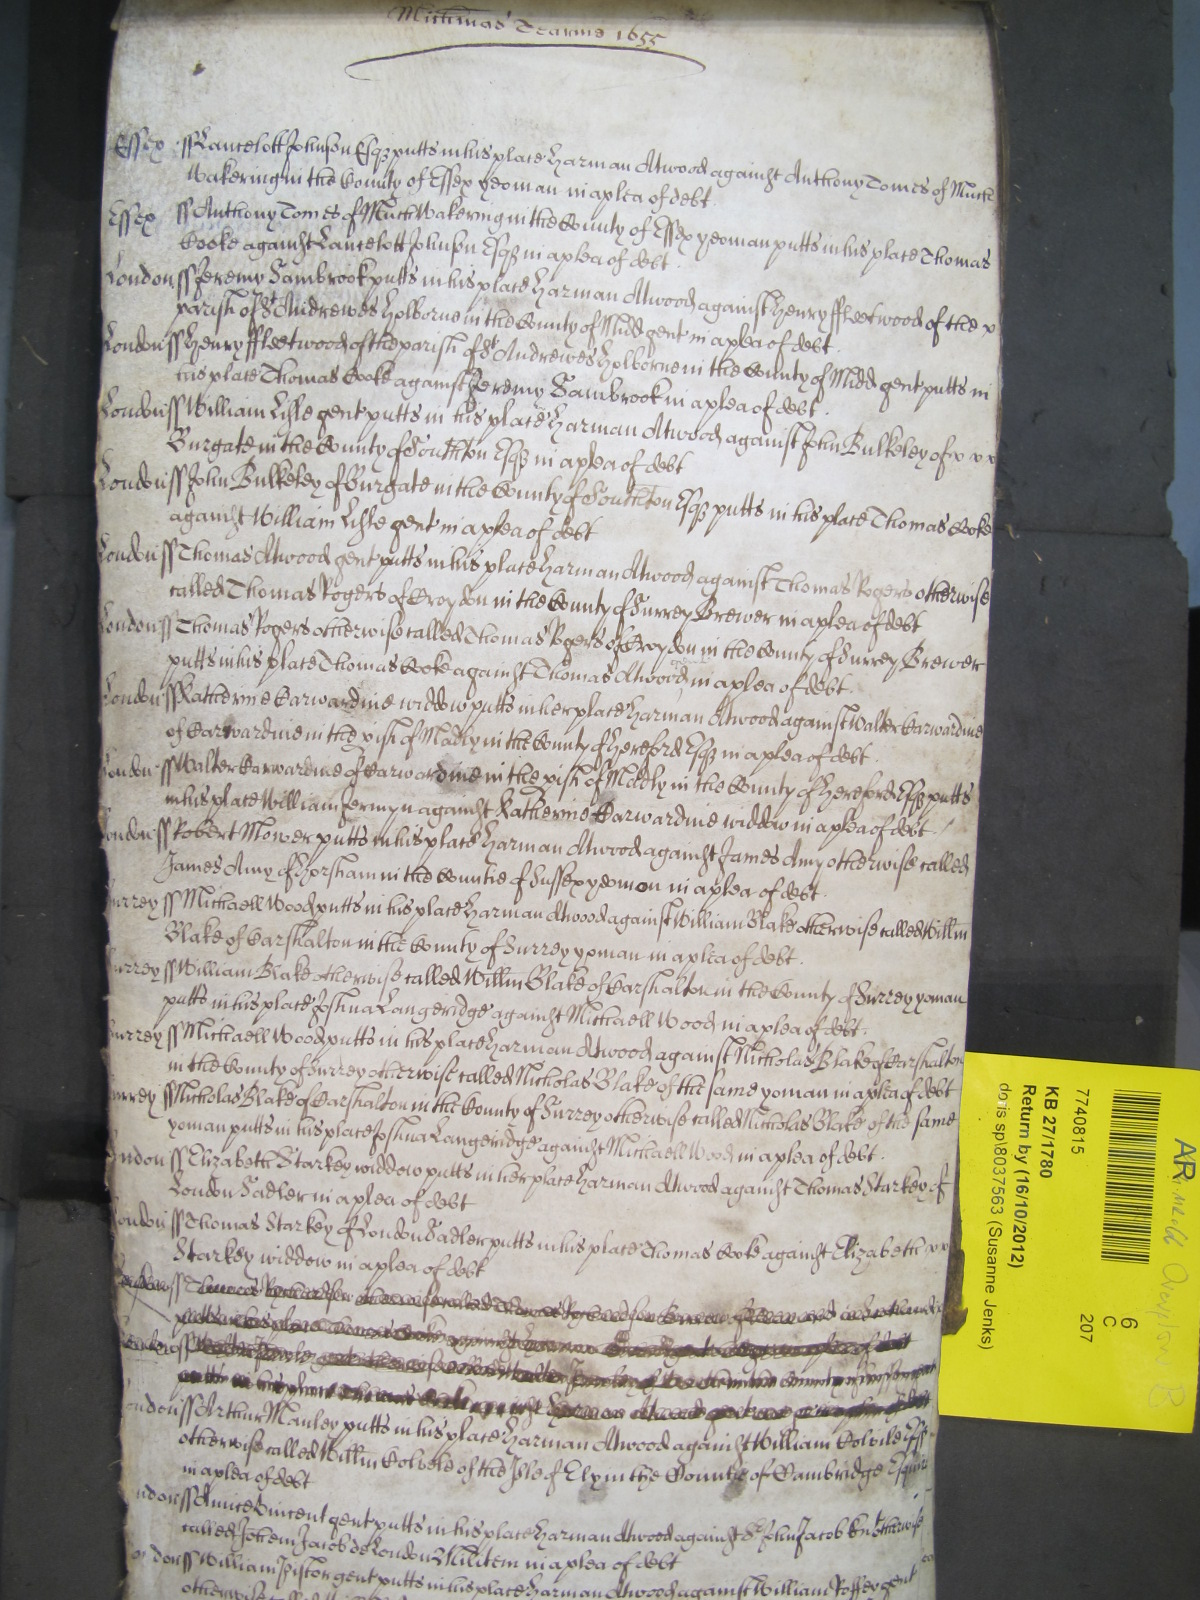 Mich'mas Tearme 1655
Essex ss Lancelott Johnson Esq3 putts in his place Harman Atwood against Anthony Tomes of Much
Wakering in the County of Essex yeoman in a plea of debt
Essex ss Anthony Tomes of Much Wakering in the County of Essex yeoman putts in his place Thomas
Cooke against Lancelott Johnson Esq3 in a plea of debt.
London ss Jeremy Sambrook putts in his place Harman Atwood against Henry ffleetwood of the x
parish of St Andrewes Holborne in the County of Midd gent in a plea of debt.
London ss Henry ffleetwood of the parish of St Andrewes Holborne in the County of Midd gent putts in
his place Thomas Cooke against Jeremy Sambrook in a plea of debt.
London ss William Lisle gent putts in his place Harman Atwood against John Bulkeley of x x x
Burgate in the County of Southton Esq3 in a plea of debt
London ss John Bulkeley of Burgate in the County of Southton Esq3 putts in his place Thomas Cooke
against William Lisle gent in a plea of debt
London ss Thomas Atwood gent putts in his place Harman Atwood against Thomas Rogers otherwise
called Thomas Rogers of Croydon in the County of Surrey Brewer in a plea of debt
London ss Thomas Rogers otherwise called Thomas Rogers of Croydon in the County of Surrey Brewer
putts in his place Thomas Cooke against Thomas Atwood in a plea of debt.
London ss Katherine Carwardine widdow putts in her place Harman Atwood against Walter Carwardine
of Carwardine in the pish of Madly in the County of Hereford Esq3 in a plea of debt.
London ss Walter Carwardine of Carwardine in the pish of Madly in the County of Hereford Esq3 putts
in his place William Jermyn against Katherine Carwardine widdow in a plea of debt
London ss Robert Mower putts in his place Harman Atwood against James Amy otherwise called
James Amy of Horsham in the Countie of Sussex yeomon in a plea of debt.
urrey ss Michaell Wood putts in his place Harman Atwood against William Blake otherwise called Willm
Blake of Carshalton in the County of Surrey yoman in a plea of debt.
urrey ss William Blake otherwise called Willm Blake of Carshalton in the County of Surrey yoman
putts in his place Joshua Langeridge against Michaell Wood in a plea of debt.
urrey ss Michaell Wood putts in his place Harman Atwood against Nicholas Blake of Carshalton
in the County of Surrey otherwise called Nicholas Blake of the same yoman in a plea of debt
urrey ss Nicholas Blake of Carshalton in the County of Surrey otherwise called Nicholas Blake of the same
yoman putts in his place Joshua Langeridge against Michaell Wood in a plea of debt.
ondon ss Elizabeth Starkey widdow putts in her place Harman Atwood against Thomas Starkey of
London Sadler in a plea of debt
ondon ss Thomas Starkey of London Sadler putts in his place Thomas Cooke against Elizabeth x x
Starkey widdow in a plea of debt
ondon ss Arthur Manley putts in his place Harman Atwood against William Colvile Esq
otherwise called Willm Colvile of the Isle of Ely in the Countie of Cambridge Esquire
in a plea of debt
ndon ss Amice Vincent gent putts in his place Harman Atwood against Sr John Jacob knt otherwise
called Johem Jacob de London Militem in a plea of debt
on don ss William Piston gent putts in his place Harman Atwood against William Roffey gent
otherwise
AR
6
C
207
7740815
KB 27/1780
Return by (16/10/2012)
doris sp\8037563 (Susanne Jenks)